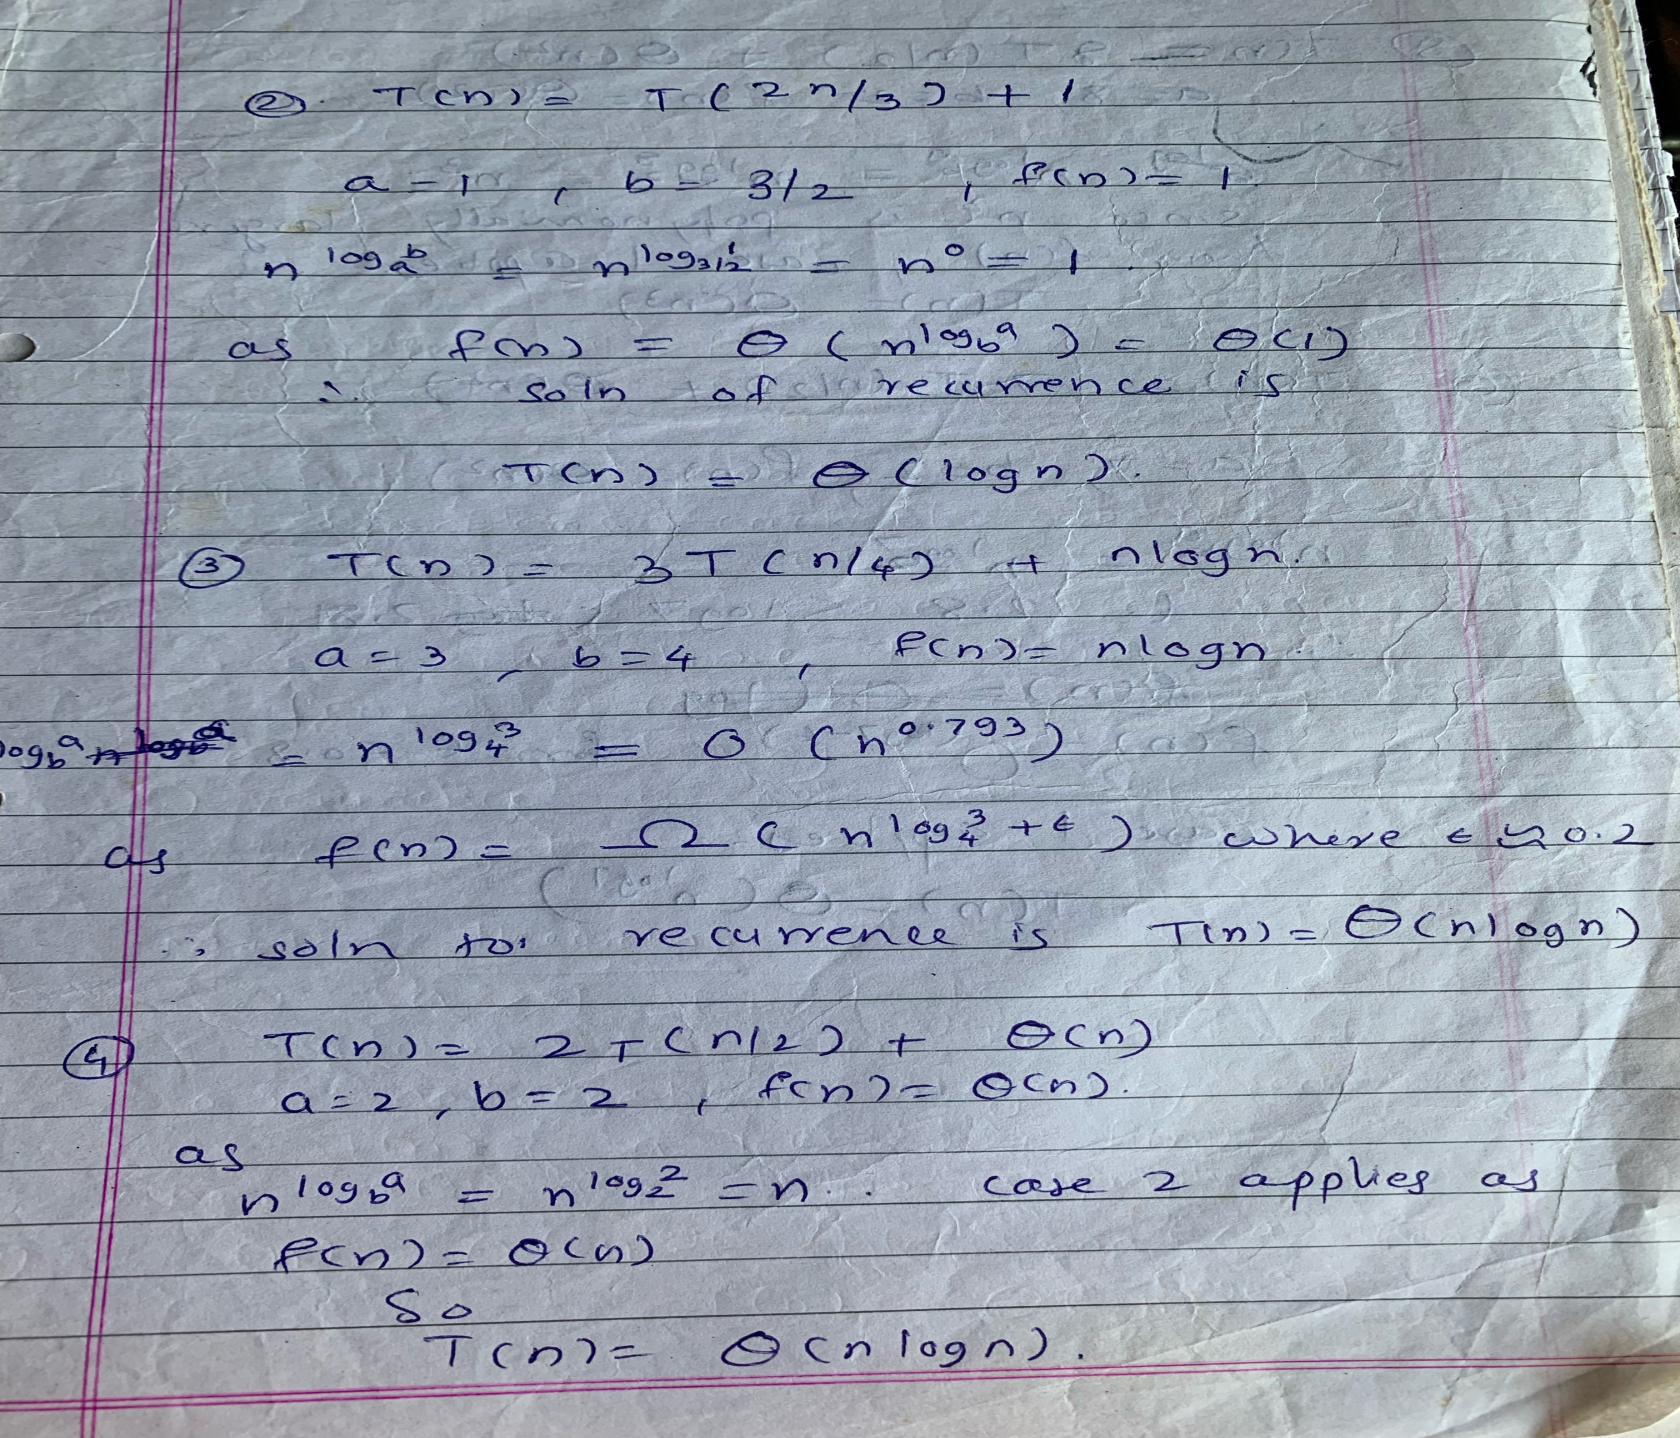 ② T(n) = T(2n/3) + 1
a = 1, b = 3/2, f(n) = 1
n^log_a^b = n^log_3/2^1 = n^0 = 1.
as f(n) = Θ(n^log_b^a) = Θ(1)
∴ soln of recurrence is
T(n) = Θ(logn).
③ T(n) = 3T(n/4) + nlogn.
a = 3, b = 4, f(n) = nlogn
log_b^a = n^log_4^3 = O(n^0.793)
as f(n) = Ω(n^log_4^3 + ε) where ε ≈ 0.2
∴ soln to recurrence is T(n) = Θ(nlogn)
④ T(n) = 2T(n/2) + Θ(n)
a = 2, b = 2, f(n) = Θ(n).
as
n^log_b^a = n^log_2^2 = n. . case 2 applies as
f(n) = Θ(n)
So
T(n) = Θ(nlogn).